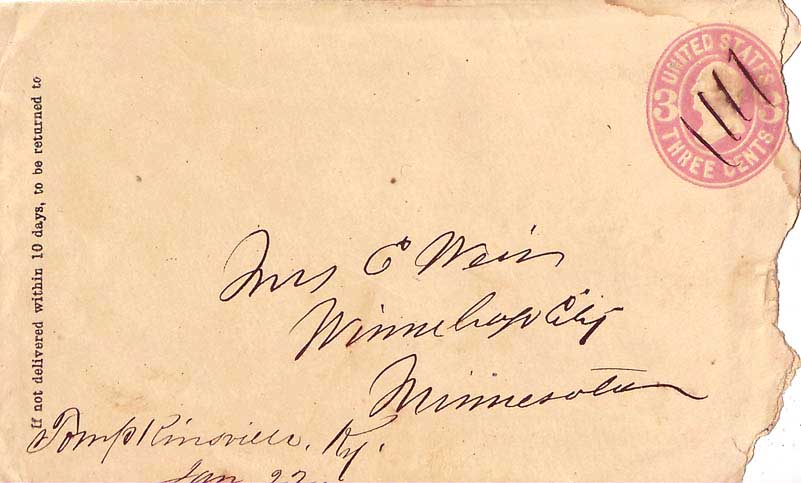 UNITED STATES
3 3
THREE CENTS
If not delivered within 10 days, to be returned to
Mrs C Weir
Winnebago City
Minnesota
Tompkinsville, Ky.
Jan 22